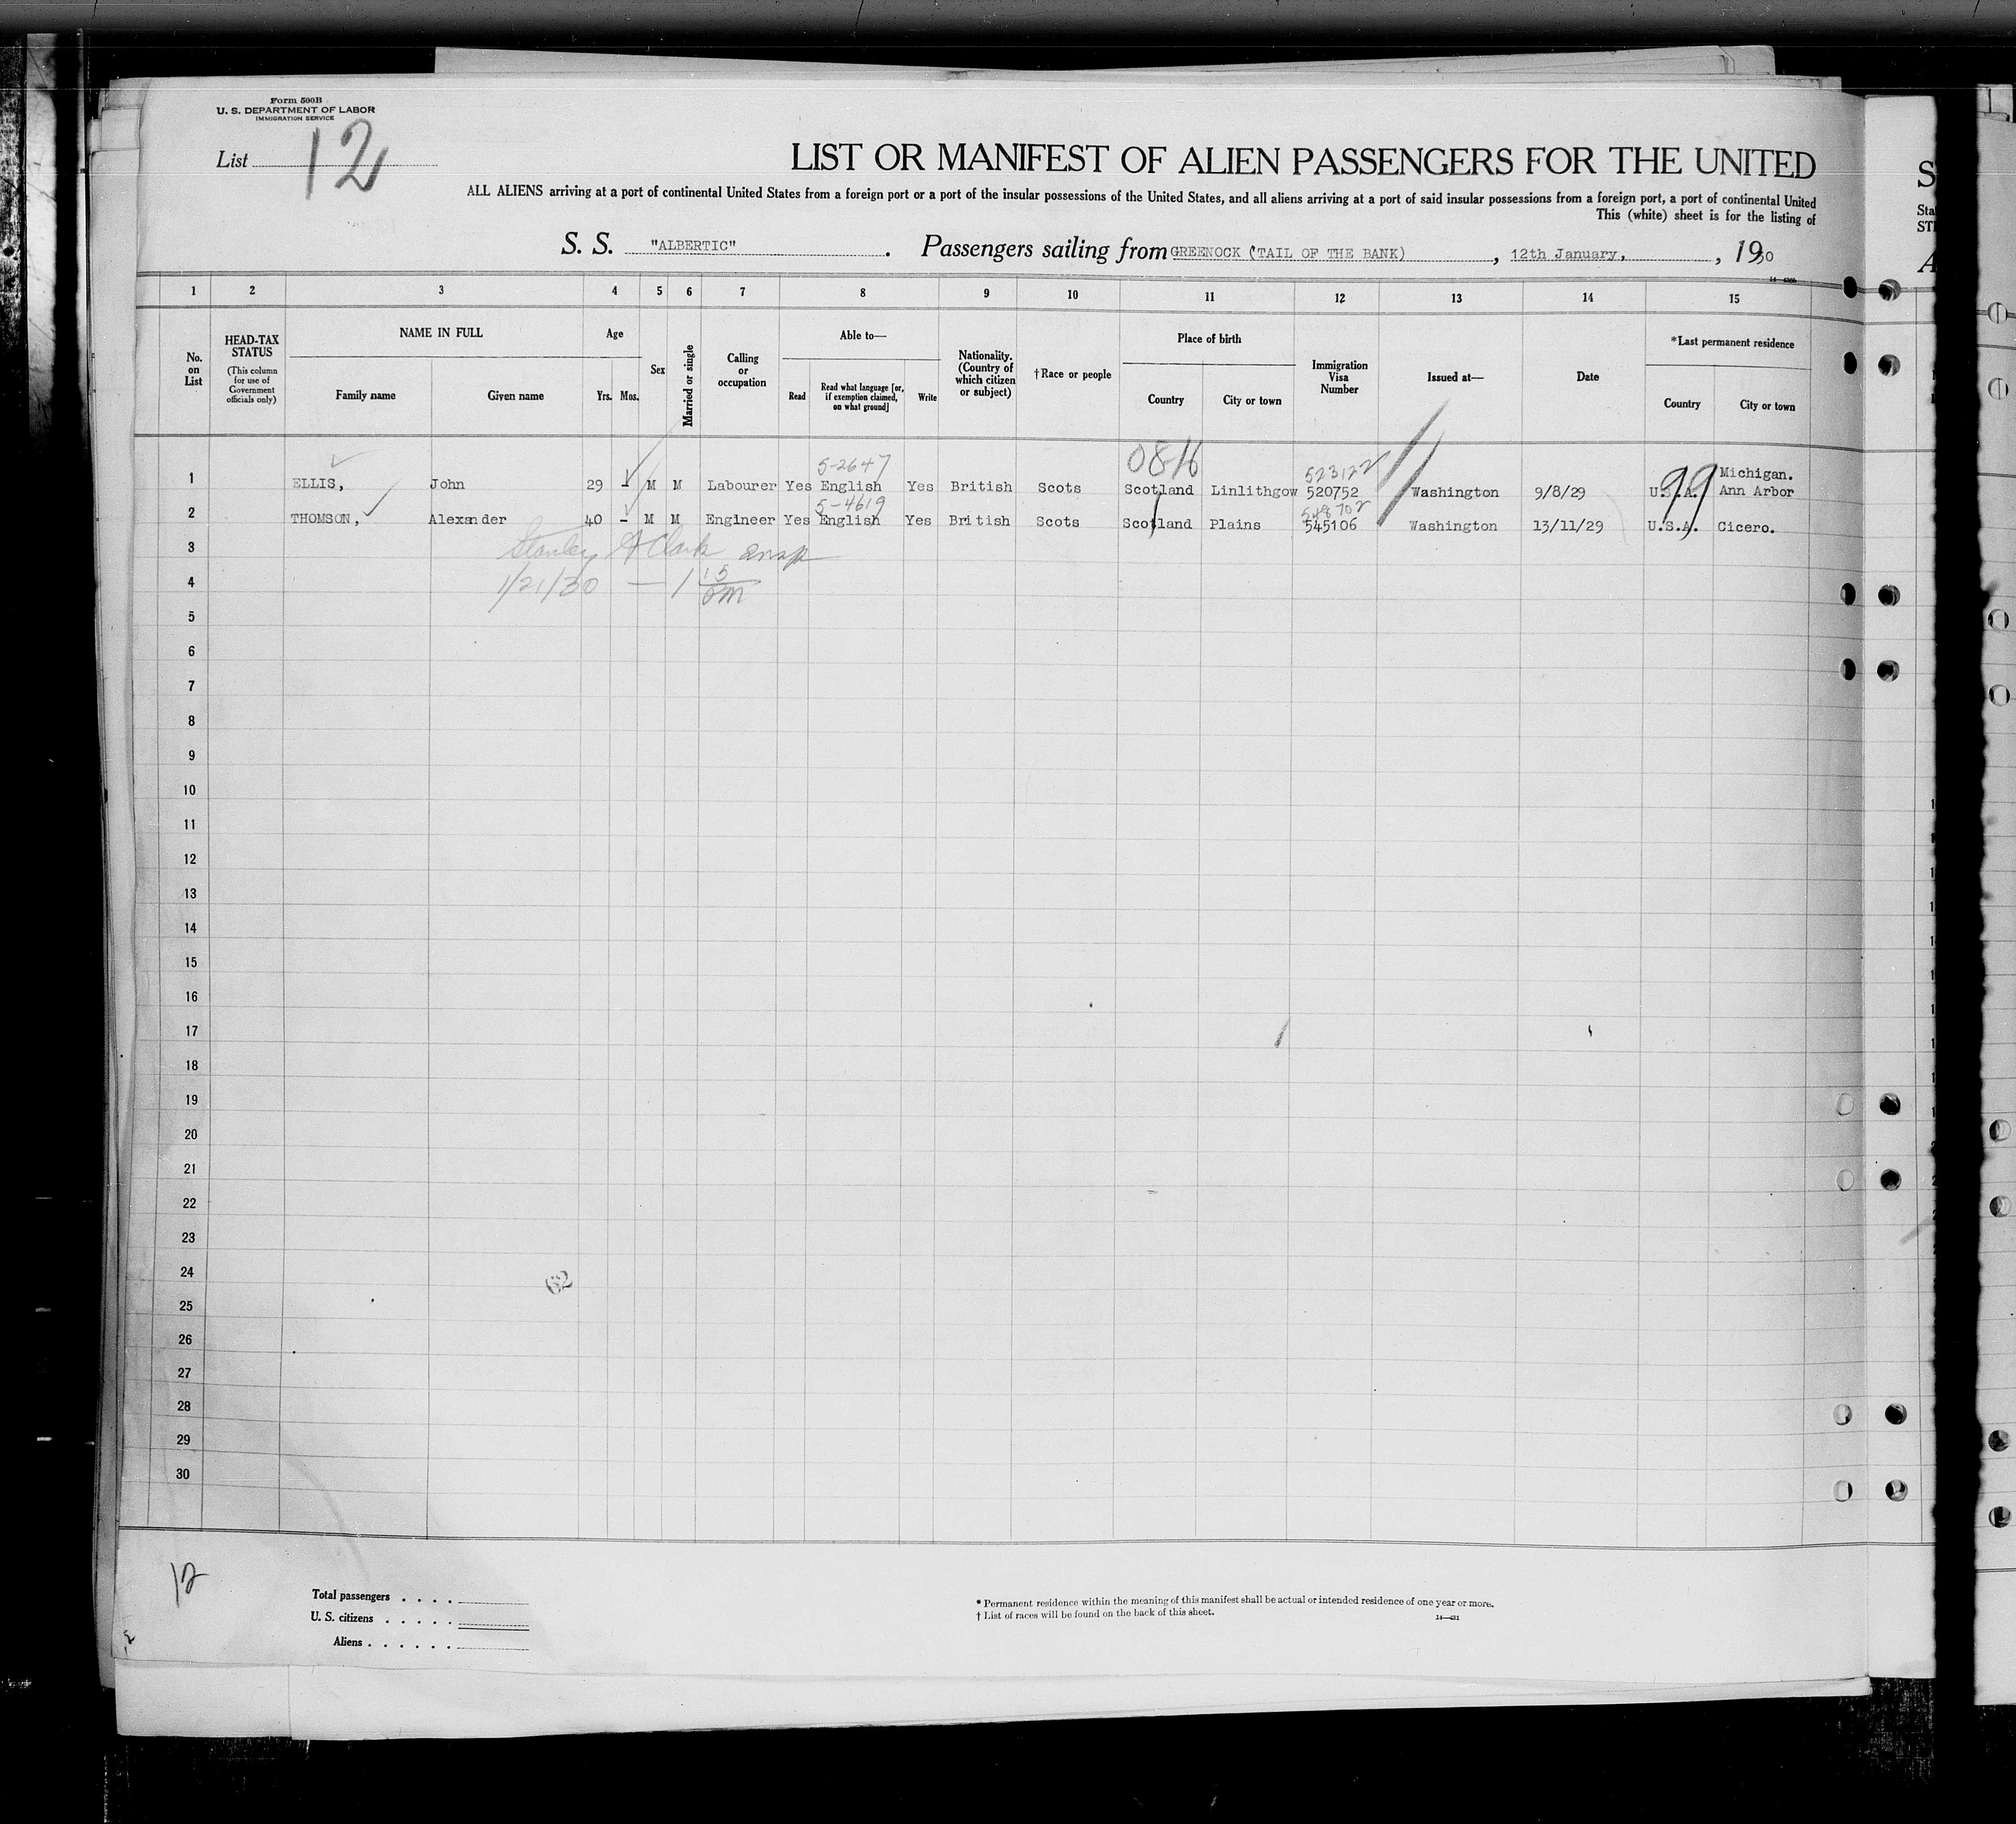 Form 500B
U. S. DEPARTMENT OF LABOR
IMMIGRATION SERVICE
List 12
LIST OR MANIFEST OF ALIEN PASSENGERS FOR THE UNITED
ALL ALIENS arriving at a port of continental United States from a foreign port or a port of the insular possessions of the United States, and all aliens arriving at a port of said insular possessions from a foreign port, a port of continental United
This (white) sheet is for the listing of
S. S. "ALBERTIC". Passengers sailing from GREENOCK (TAIL OF THE BANK), 12th January, , 1930
1 2 3 4 5 6 7 8 9 10 11 12 13 14 15
No. on List
HEAD-TAX STATUS
(This column for use of Government officials only)
NAME IN FULL
Family name Given name
Age
Yrs. Mos.
Sex
Married or single
Calling or occupation
Able to—
Read
Read what language [or, if exemption claimed, on what ground]
Write
Nationality. (Country of which citizen or subject)
†Race or people
Place of birth
Country City or town
Immigration Visa Number
Issued at—
Date
*Last permanent residence
Country City or town
08
5-2647 Michigan.
1 ELLIS, John 29 - M M Labourer Yes English Yes British Scots Scotland Linlithgow 520752 Washington 9/8/29 U.S.A. Ann Arbor
99
5-4619 548702
2 THOMSON, Alexander 40 - M M Engineer Yes English Yes British Scots Scotland Plains 545106 Washington 13/11/29 U.S.A. Cicero.
3 Stanley A Clark
4 1/21/30 — 1 15 pm
5
6
7
8
9
10
11
12
13
14
15
16
17
18
19
20
21
22
23
24
25
26
27
28
29
30
12
Total passengers . . . .
U. S. citizens . . . . .
Aliens . . . . . .
* Permanent residence within the meaning of this manifest shall be actual or intended residence of one year or more.
† List of races will be found on the back of this sheet.
14—431